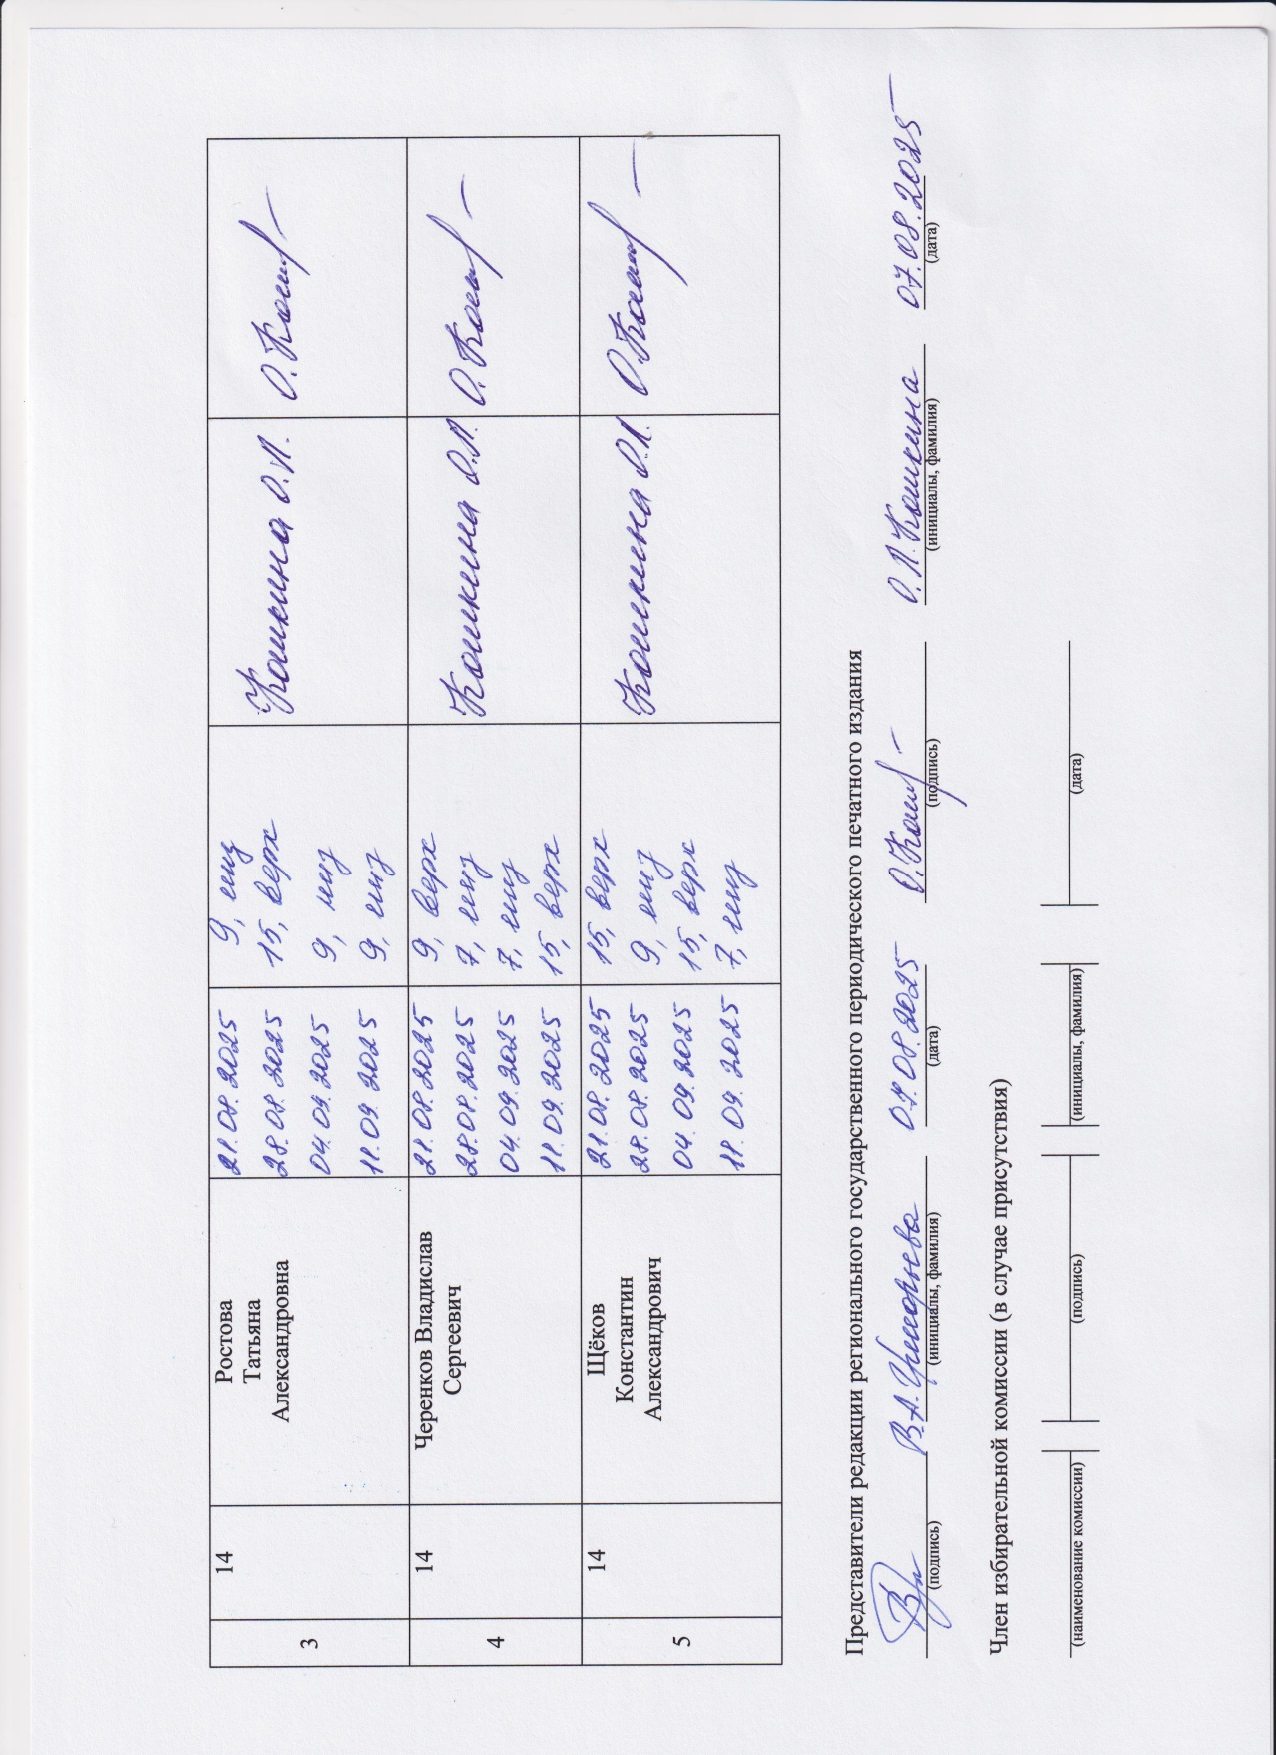 3
14
Ростова
Татьяна
Александровна
21.08.2025 9, низ
28.08.2025 15, верх
04.09.2025 9, низ
11.09.2025 9, низ
Кошкина О.Л.
4
14
Черенков Владислав
Сергеевич
21.08.2025 9, верх
28.08.2025 7, низ
04.09.2025 7, низ
11.09.2025 15, верх
Кошкина О.Л.
5
14
Щёков
Константин
Александрович
21.08.2025 15, верх
28.08.2025 9, низ
04.09.2025 15, верх
11.09.2025 7, низ
Кошкина О.Л.
Представители редакции регионального государственного периодического печатного издания
В.А. 07.08.2025 О.Л. Кошкина 07.08.2025
(подпись) (инициалы, фамилия) (дата) (подпись) (инициалы, фамилия) (дата)
Член избирательной комиссии (в случае присутствия)
(наименование комиссии) (подпись) (инициалы, фамилия) (дата)